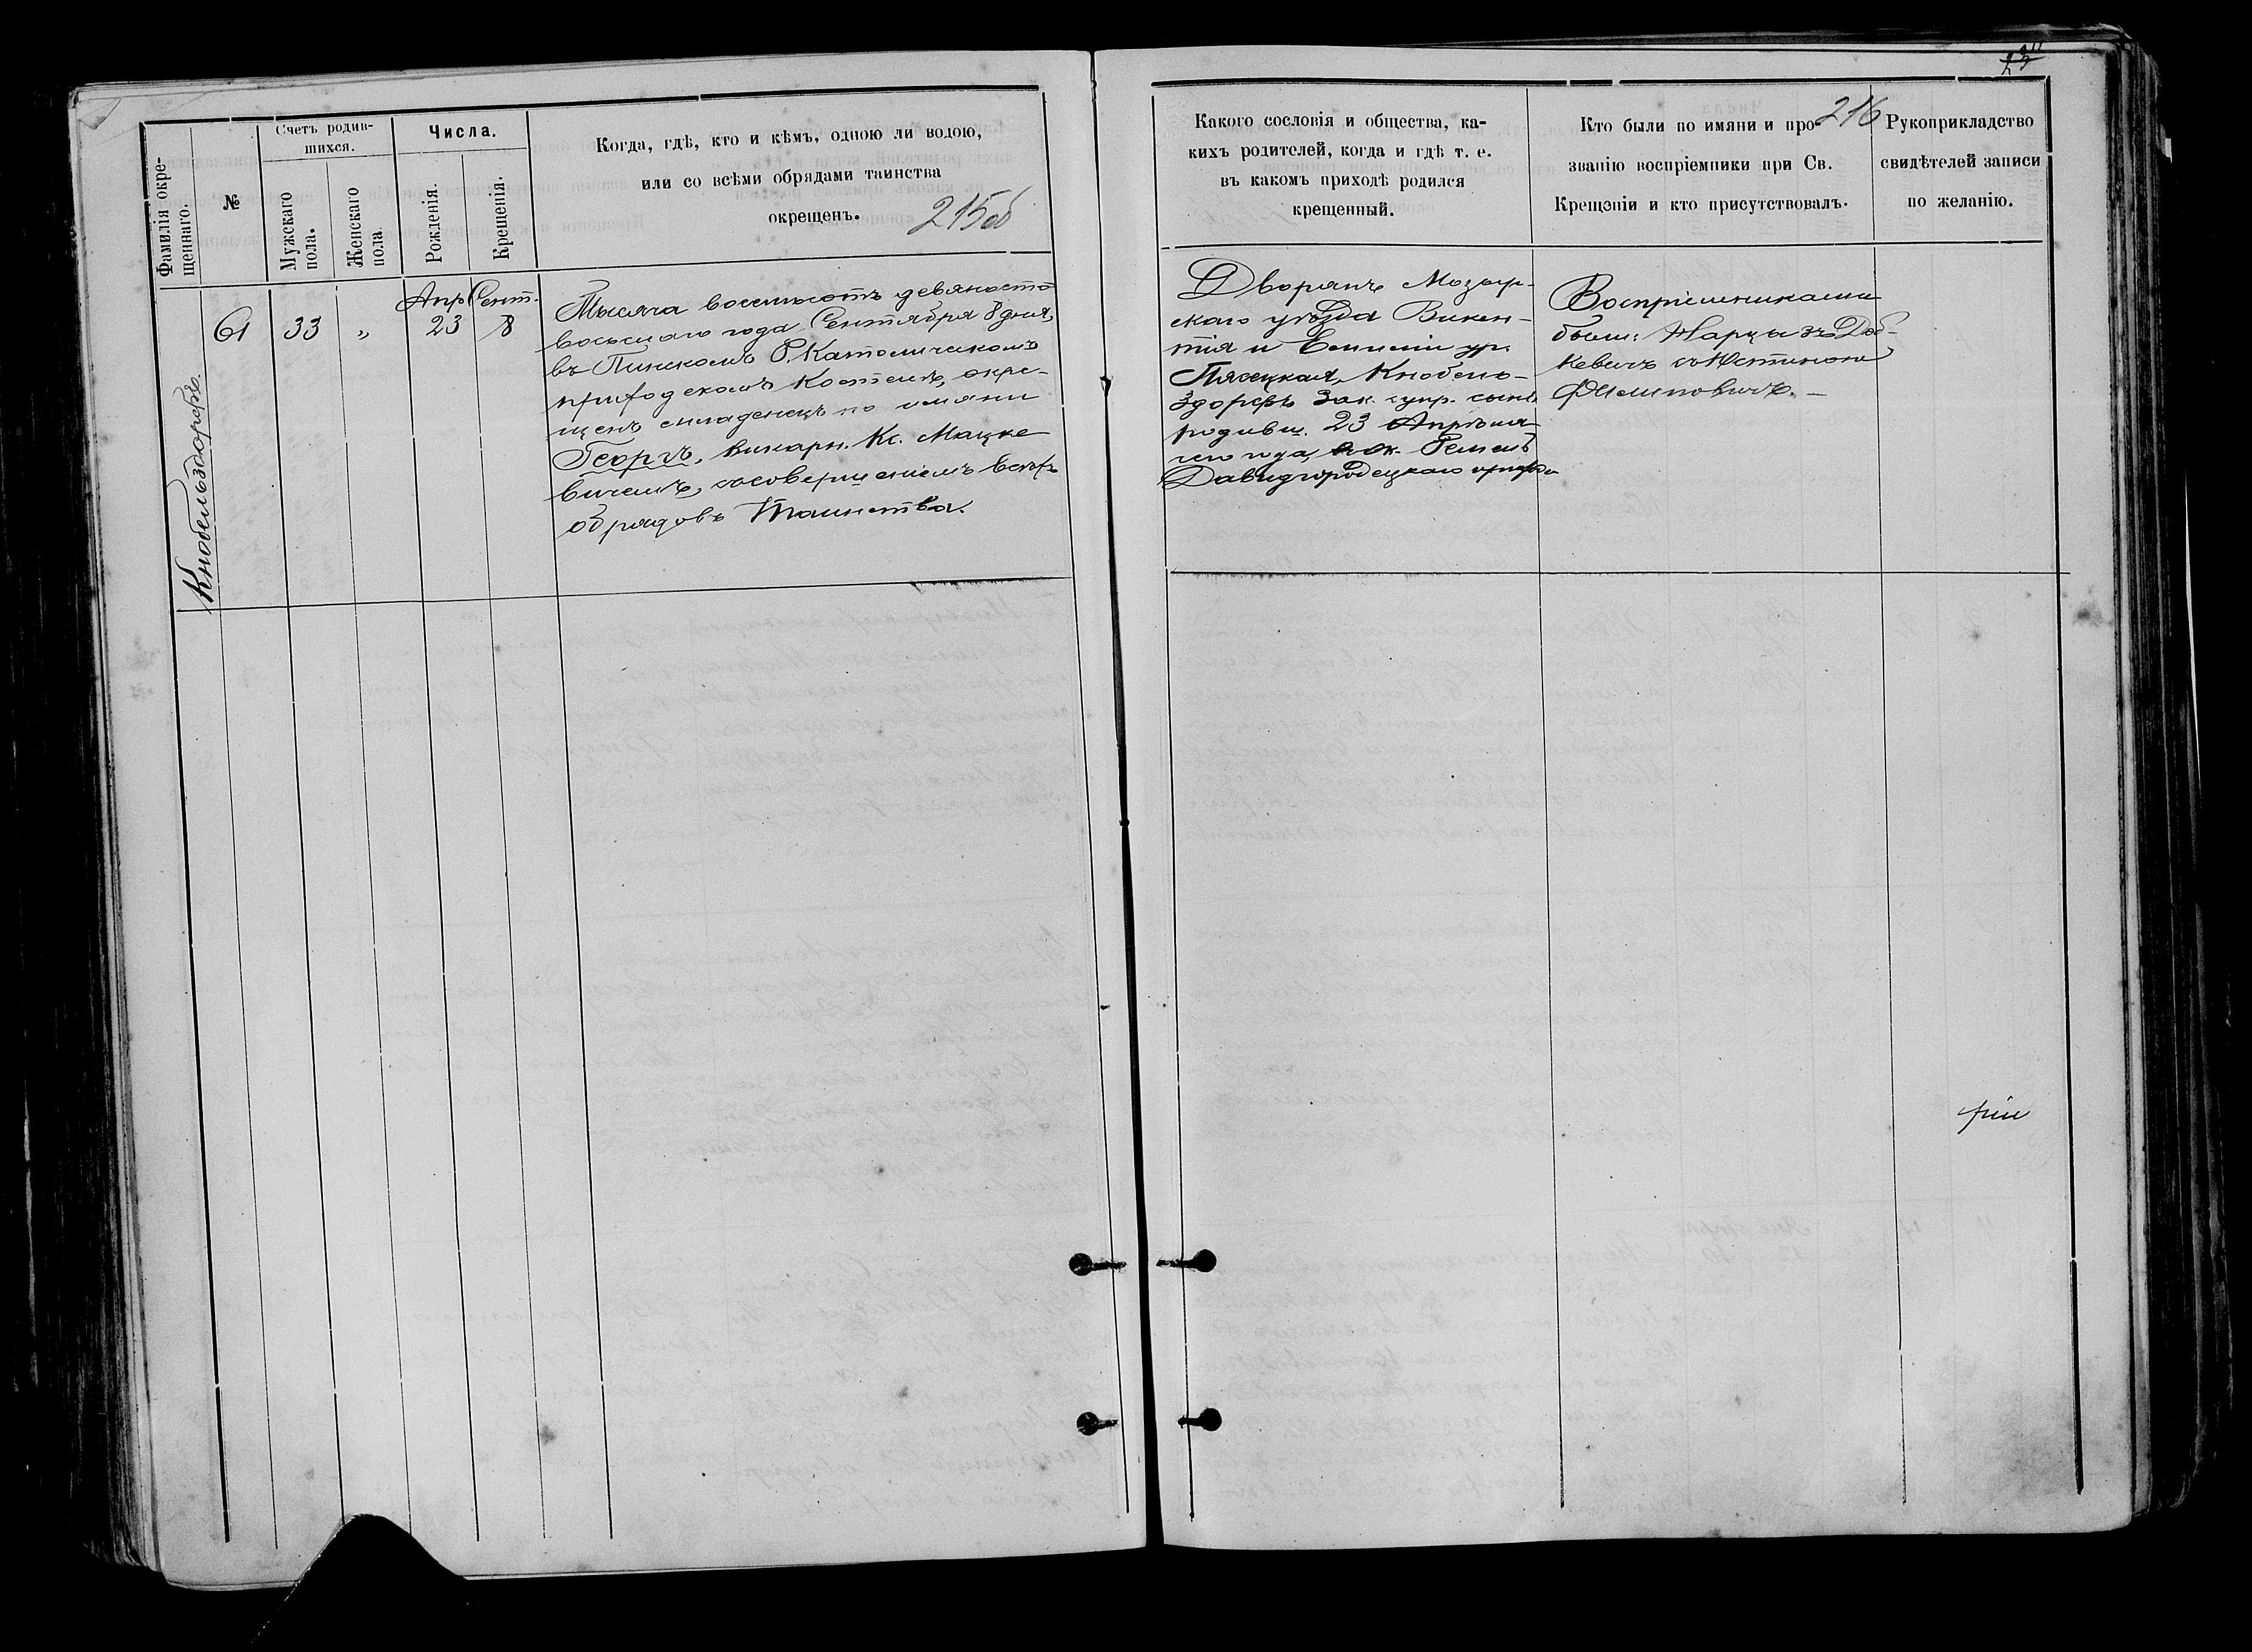 Фамилія окре-
щеннаго.
№
Счетъ родив-
шихся.
Мужскаго
пола.
Женскаго
пола.
Числа.
Рожденія.
Крещенія.
Когда, гдѣ, кто и кѣмъ, одною ли водою,
или со всѣми обрядами таинства
окрещенъ.
215об
Кнобельздорфъ.
61
33
„
Апр.
23
Сент.
8
Тысяча восемьсотъ девяносто
восьмаго года Сентября 8 дня,
въ Пинскомъ Р. Католическомъ
приходскомъ костелѣ, окре-
щенъ младенецъ по имяни
Георгъ, викарн. Кс. Мацке-
вичемъ, съ совершеніемъ всѣхъ
обрядовъ Таинства.
216
Какого сословія и общества, ка-
кихъ родителей, когда и гдѣ т. е.
въ какомъ приходѣ родился
крещенный.
Кто были по имяни и про-
званію воспріемники при Св.
Крещэніи и кто присутствовалъ.
Рукоприкладство
свидѣтелей записи
по желанію.
Дворянъ Мозыр-
скаго уѣзда Викен-
тія и Емиліи ур.
Пясецкая, Кнобель-
здорфъ зак. супр. сынъ
родивш. 23 Апрѣля
сего года
Давидгородецкаго прихода
Воспріемниками
были: Нарцызъ Доб-
кевичъ съ Юстиною
Филиповичъ. —